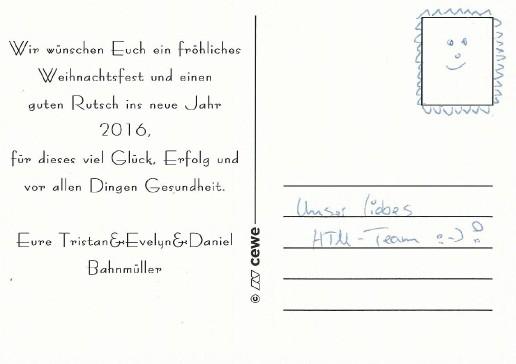 Wir wünschen Euch ein fröhliches
Weihnachtsfest und einen
guten Rutsch ins neue Jahr
2016,
für dieses viel Glück, Erfolg und
vor allen Dingen Gesundheit.
Eure Tristan&Evelyn&Daniel
Bahnmüller
© cewe
Unser liebes
HTM-Team :-)